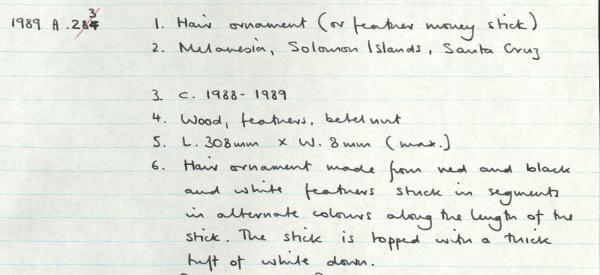 1989 A.283 1. Hair ornament (or feather money stick)
2. Melanesia, Solomon Islands, Santa Cruz
3. c. 1988-1989
4. Wood, feathers, betel nut
5. L. 308mm x W. 8mm (max.)
6. Hair ornament made from red and black
and white feathers stuck in segments
in alternate colours along the length of the
stick. The stick is topped with a thick
tuft of white down.